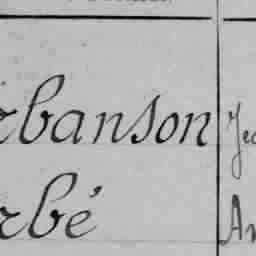 rbanson Je
rbé An